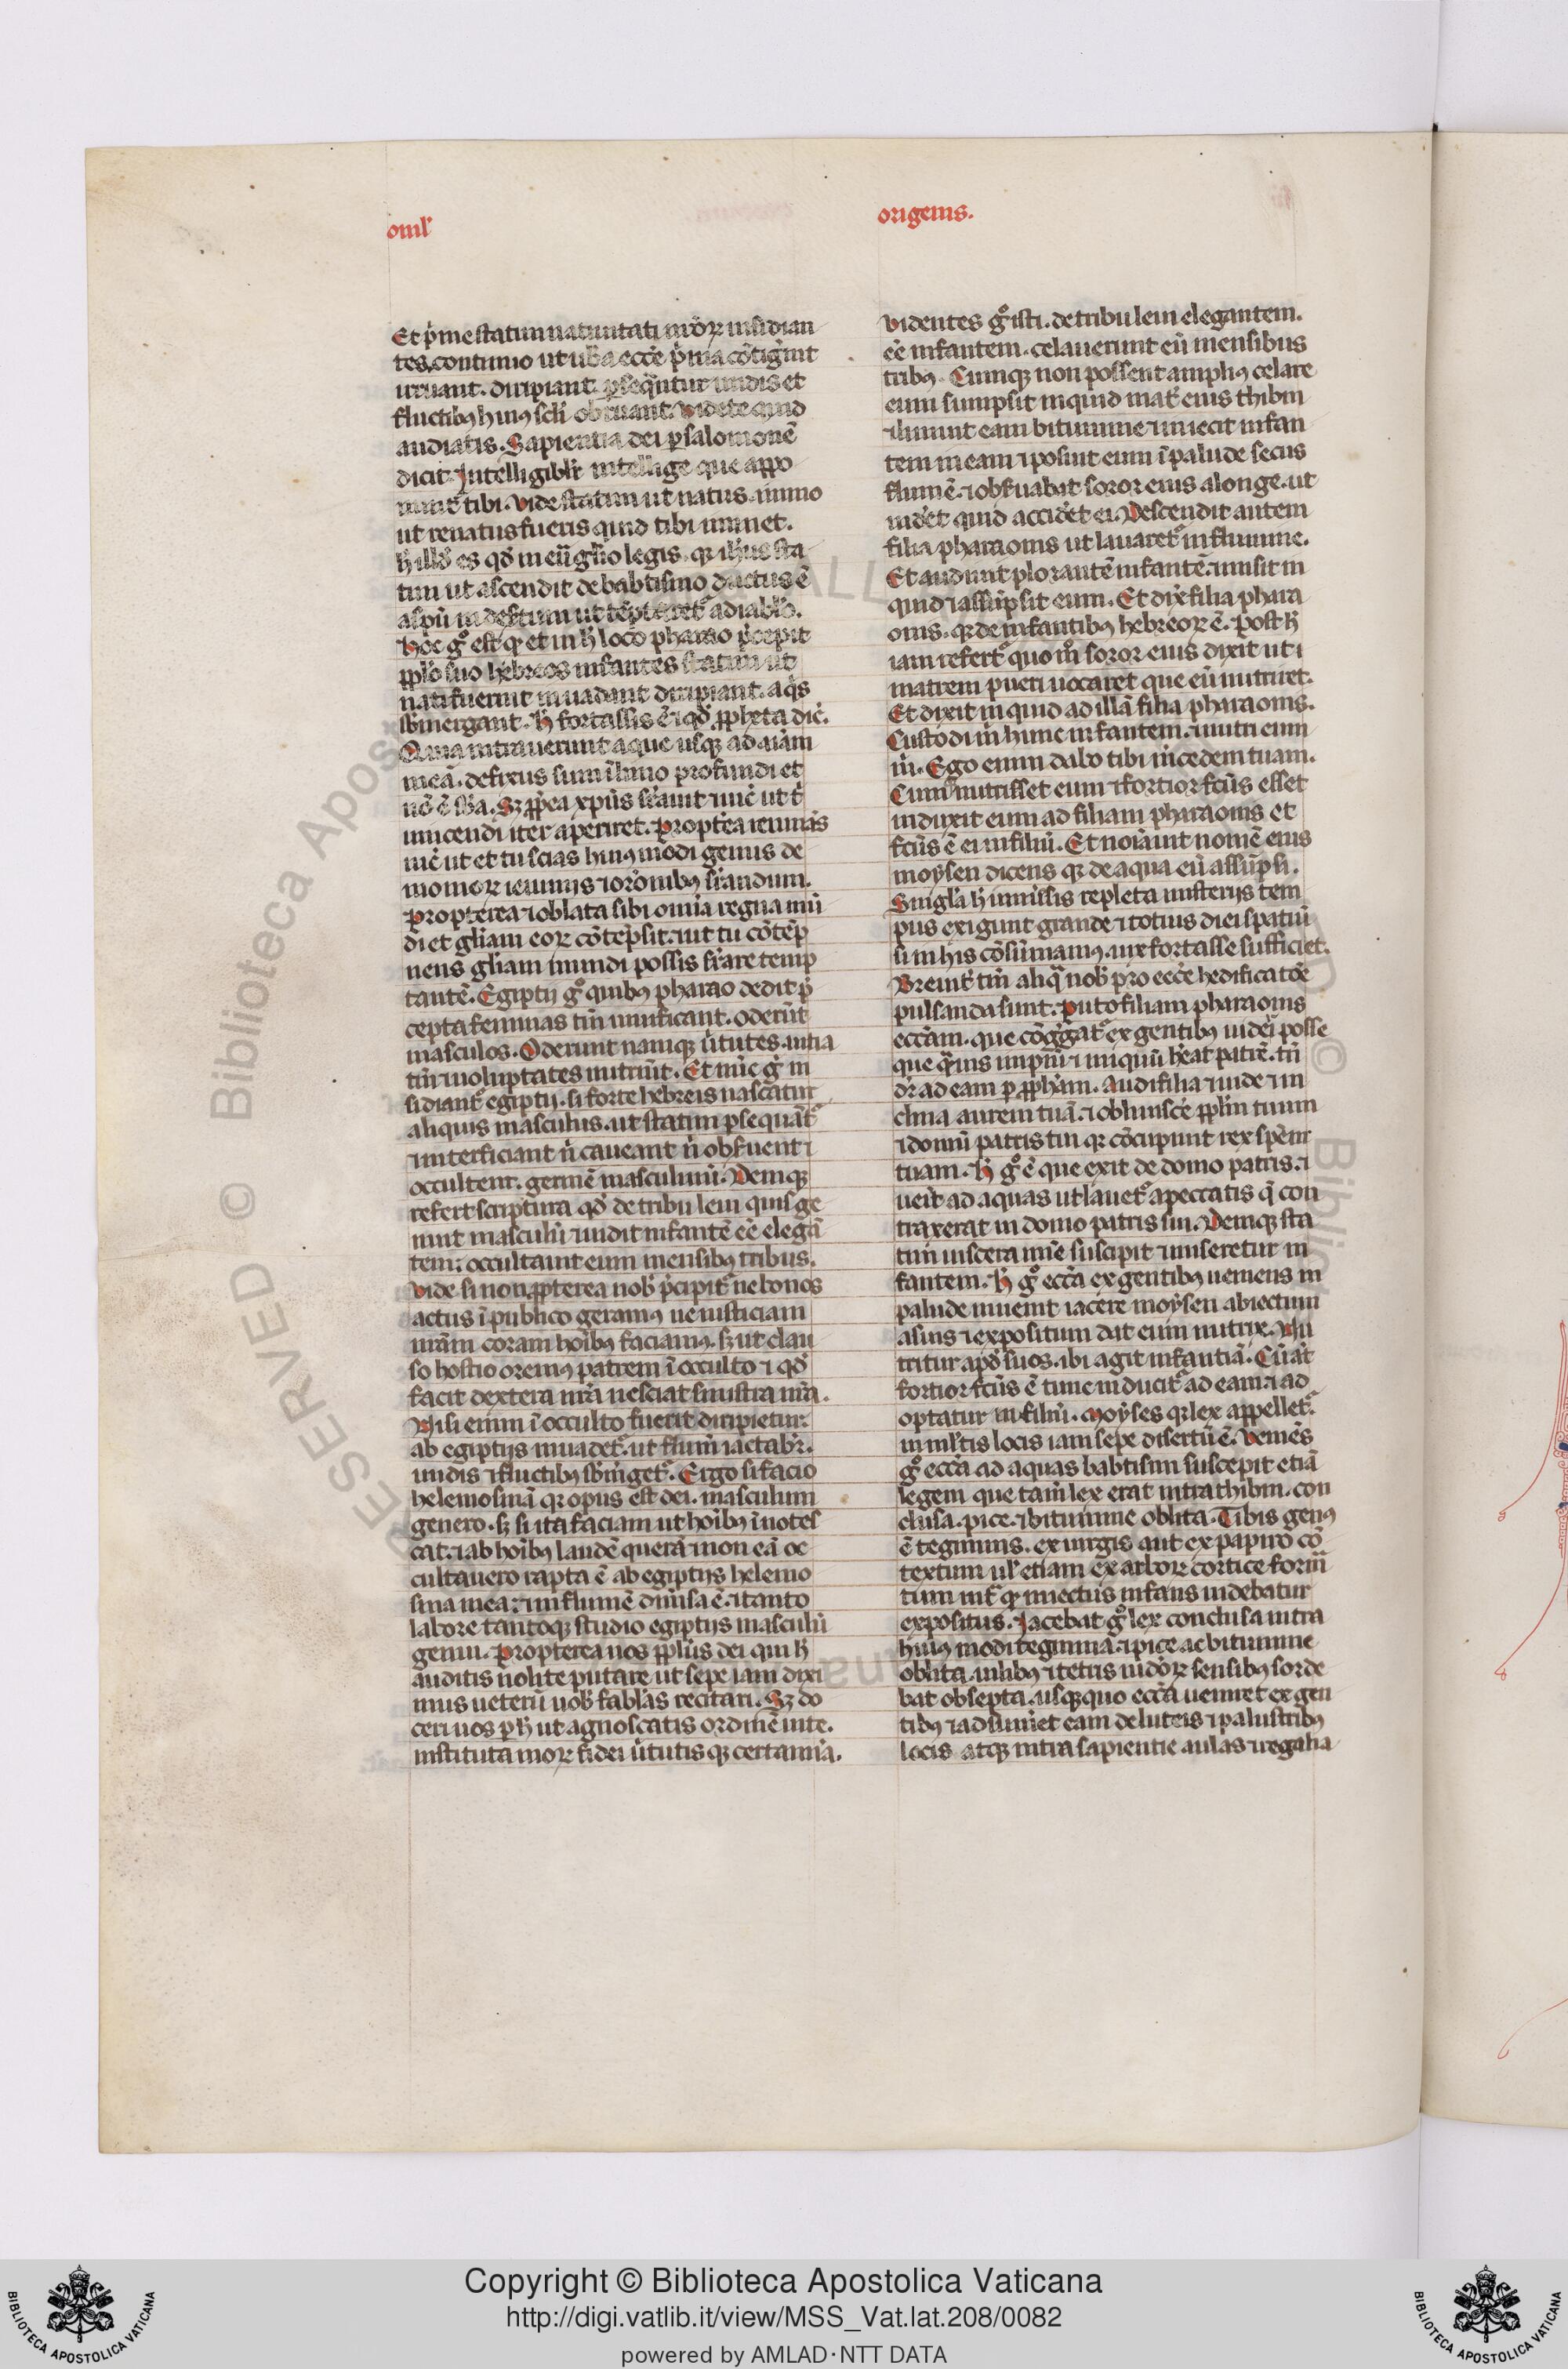 omĺ
origenis.
Et p̃me statim natiuitati nr̃oꝝ insidian
tes continuo ut ub̾a ecce p̃ma cõtig̾int
irruant. diripiant. ꝑseq̃ntur undis et
fluctibꝰ huiꝰ scĺi obruant. Videte quid
audiatis. Sapientia dei ꝑ salomonẽ
dicit. Intelligibĺr intellige que appo
nunt᷑ tibi. Vide statim ut natus. immo
ut renatus fueris quid tibi iminet.
tim ut ascendit de babtismo ductus ẽ
a sp̃u in deẜtum ut tẽptaret᷑ a diabĺo.
Hoc gͦ est qꝫ et in h̾ loco pharao p̃cepit
ppĺo suo hebreos infantes statim ut
nati fuerint inuadant diripiant. aq̃s
sb̾mergant. H̾ fortassis ẽ ⁊ qd̾ ꝓpheta dic̾.
Q̃nia intrauerunt aque usqꝫ ad aĩam
meã. defixus sum ĩ limo profundi et
nõ ẽ sb̾a. Sꝫ ꝓpt̾ea xp̃us
uincendi iter aperiret. Propterea ieiunās
uic̾ ut et tu scias huiꝰmodi genus de
monioꝝ ieiuniis ⁊ or̃onibꝰ suꝑandum.
Propterea ⁊ oblata sibi om̃ia regna mũ
di et gĺiam eoꝝ cõtẽpsit. ut ⁊ tu cõtẽp
nens gĺiam mundi possis suꝑare temp
tantẽ. Egiptii gͦ quibꝰ pharao dedit p̃
cepta feminas tm̃ uiuificant. oderũt
masculos. Oderunt namqꝫ ũtutes. uitia
tm̃ ⁊ uoluptates nutriũt. Et nũc gͦ in
sidiant᷑ egiptii. si forte hebreis nascatur
aliquis masculus. ut statim ꝑsequãt᷑
⁊ interficiant n̾ caueant n̾ obẜuent ⁊
occultent. germẽ masculinũ. Deniqꝫ
refert scriptura qd̾ de tribu leui quis ge
nuit masculũ ⁊ uidit infantẽ eẽ elegã
tem: occultauit eum mensibꝰ tribus.
Vide si non ꝓpterea nob̾ p̃cipit᷑ ne bonos
actus ĩ publico geramꝰ ne iusticiam
nr̃am coram hoĩbus faciamꝰ. sꝫ ut clau
so hostio oremꝰ patrem ĩ occulto ⁊ qd̾
facit dextera nr̃a nesciat sinistra nr̃a.
Nisi enim ĩ occulto fuerit diripietur.
ab egiptiis inuadet᷑. ut flumĩ iactabĩt᷑.
undis ⁊ fluctibꝰ sb̾m̾get᷑. Ergo si facio
helemosinã qꝛ opus est dei. masculum
genero. sꝫ si ita faciam ut hoĩbꝰ ĩnotes
cat. ⁊ ab hoĩbꝰ laudẽ querã ⁊ non eã oc
cultauero rapta ẽ ab egiptiis helemo
sina mea: ⁊ in flumẽ dim̃sa ẽ. ⁊ tanto
labore tantoqꝫ studio egiptiis masculũ
genui. Propterea uos ppĺus dei qui h̾
auditis nolite putare ut sepe iam dixi
mus ueterũ uob̾ fablãs recitari. Sꝫ do
ceri uos ꝑ h̾ ut agnoscatis ordinẽ uite.
instituta moꝝ fidei ũtutis qꝫ certamĩa.
Videntes gͦ isti. de tribu leui elegantem.
eẽ infantem. celauerunt eũ mensibus
tribꝰ. Cumqꝫ non possent ampliꝰ celare
eum sumpsit inquid mat̾ eius thibin
⁊ liniuit eam bitumine ⁊ iniecit infan
tem in eam ⁊ posuit eum ĩ palude secus
flumẽ. ⁊ obẜuabat soror eius a longe. ut
uid̾et quid accid̾et ei. Descendit autem
filia pharaonis ut lauaret᷑ in flumine.
Et audiuit plorantẽ infantẽ. ⁊ misit in
quid ⁊ assũpsit eum. Et dix̾ filia phara
onis. qꝛ de infantibꝰ hebreoꝝ ẽ. Post h̾
iam refert᷑ quo m̊ soror eius dixit ut ⁊
matrem pueri uocaret que eũ nutriret.
Et dixit inquid ad illã filia pharaonis.
Custodi m̃ hunc infantem. ⁊ nutri eum
m̃. Ego enim dabo tibi m̃cedem tuam.
Cum nutrisset eum ⁊ fortior fc̃us esset
induxit eum ad filiam pharaonis et
fc̃us ẽ ei in filiũ. Et noĩauit nomẽ eius
moysen dicens qꝛ de aqua eũ assũpsi.
Singĺa h̾ inmẽsis repleta misteriis tem
pus exigunt grande. ⁊ totius diei spatiũ
si in his cõsũmamꝰ. uix fortasse sufficiet.
Breuit̾ tm̃ aliq̃ nob̾ pro ecc̃e hedificatõe
pulsanda sunt. Puto filiam pharaonis
ecc̃am. que cõg̾gat᷑ ex gentibꝰ uideri posse
que q̃muis impiũ ⁊ iniquũ heat patrẽ. tñ
dr̃ ad eam ꝑ ꝓpham. Audi filia ⁊ uide ⁊ in
clina aurem tuã. ⁊ obliuiscẽ ppĺm tuum
⁊ domũ patris tui qꝛ cõcupiuit rex spẽm
tuam. H̾ gͦ ẽ que exit de domo patris. ⁊
uẽit ad aquas ut lauet᷑ a peccatis q̃ con
traxerat in domo patris sui. Deniqꝫ sta
tim uiscera mĩe suscipit ⁊ miseretur in
fantem. H̾ gͦ ecc̃a ex gentibꝰ ueniens in
palude inuenit iacere moysen abiectum
a suis ⁊ expositum dat eum nutrix. Nu
tritur apd̾ suos. ibi agit infantiã. Cũ aũt
fortior fc̃us ẽ tunc inducit᷑ ad eam ⁊ ad
optatur in filiũ. Moyses qꝛ lex appellet᷑.
in mĺtis locis iam sepe disertũ ẽ. Veniẽs
gͦ ecc̃a ad aquas babtismi suscepit etiã
legem que tam̃ lex erat intra thibin. con
clusa. pice. ⁊ bitumine oblita. Tibis genꝰ
ẽ tegminis. ex uirgis aut ex papiro cõ
textum uĺ etiam ex arbor̾ cortice formã
tum int̾ qꝫ iniectus infans uidebatur
expositus. Iacebat gͦ lex conclusa intra
huiꝰmodi tegimina. ⁊ pice ac bitumine
oblita. uilibꝰ ⁊ tetris iudeoꝝ sensibꝰ sorde
bat obsepta. usqꝫquo ecc̃a ueniret ex gen
tibꝰ ⁊ adsum̾et eam de luteis ⁊ palustribꝰ
locis atqꝫ intra sapientie aulas ⁊ regalia
Copyright © Biblioteca Apostolica Vaticana
http://digi.vatlib.it/view/MSS_Vat.lat.208/0082
powered by AMLAD·NTT DATA
BIBLIOTECA APOSTOLICA VATICANA
BIBLIOTECA APOSTOLICA VATICANA